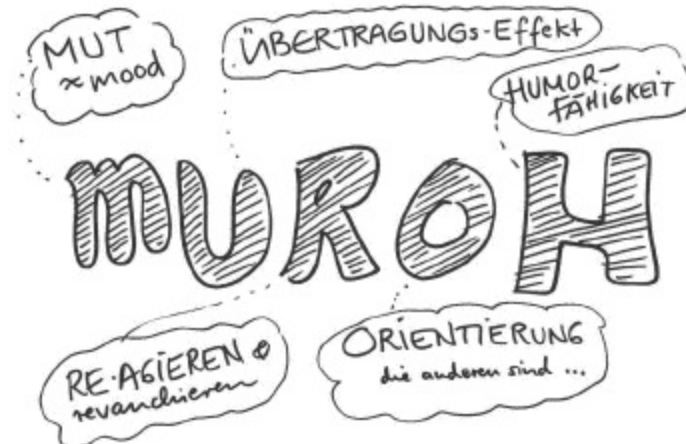 MUT
≈ mood
ÜBERTRAGUNGs-Effekt
HUMOR-
FÄHIGKEIT
MUROH
RE·AGIEREN &
revanchieren
ORIENTIERUNG
die anderen sind ...